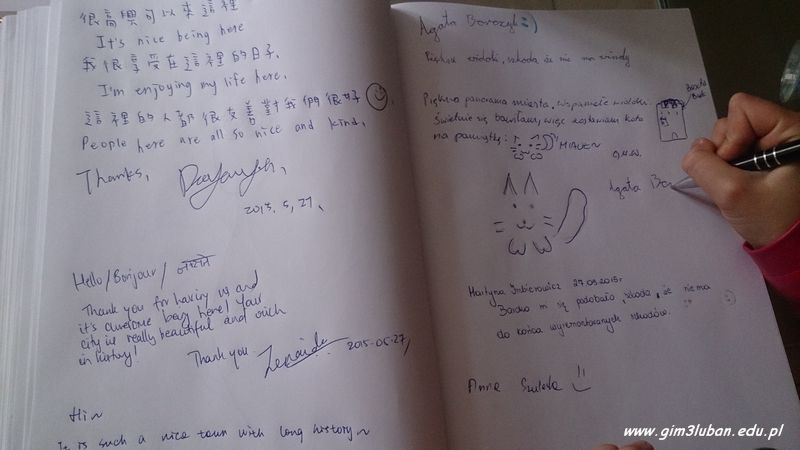 很高興可以來這裡
It's nice being here
我很享受在這裡的日子.
I'm enjoying my life here.
這裡的人都很友善對我們很好
People here are all so nice and kind.
Thanks,
2015, 5, 27,
Hello/Bonjour/नमस्ते
Thank you for having us and
it's awesome being here! Your
city is really beautiful and rich
in history!
Thank you
Zenaida
2015-05-27,
Hi~
It is such a nice town with long history~
Agata :)
Piękne widoki, szkoda że nie ma windy
Piękna panorama miasta, wspaniałe widoki.
Świetnie się bawiłam, więc zostawiam kota
na pamiątkę:
MIAUEN
Agata
Martyna 27.05.2015r
Bardzo mi się podobało, szkoda, że nie ma
do końca wyremontowanych schodów.
Anna
www.gim3luban.edu.pl